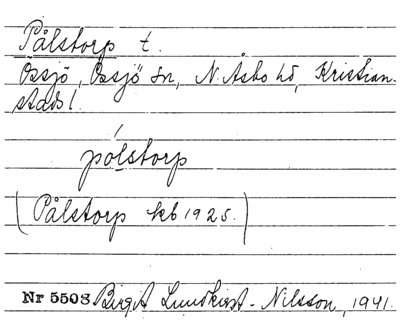 Pålstorp t.
Össjö, Össjö sn, N. Åsbo hd, Kristian-
stads l.
pólstorp
(Pålstorp kb 1925.)
Nr 5508 Birgit Lundkvist-Nilsson, 1941.